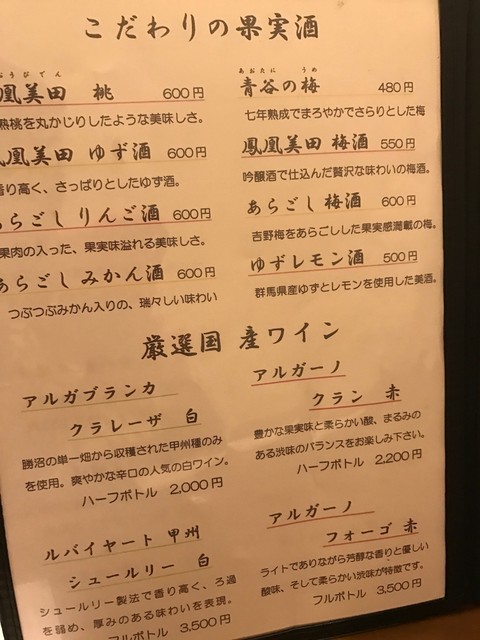 こだわりの果実酒
うびでん
凰美田 桃 600円
熟桃を丸かじりしたような美味しさ。
凰美田 ゆず酒 600円
香り高く、さっぱりとしたゆず酒。
あらごしりんご酒 600円
果肉の入った、果実味溢れる美味しさ。
あらごしみかん酒 600円
つぶつぶみかん入りの、瑞々しい味わい
あおたに うめ
青谷の梅 480円
七年熟成でまろやかでさらりとした梅
鳳凰美田 梅酒 550円
吟醸酒で仕込んだ贅沢な味わいの梅酒。
あらごし梅酒 600円
吉野梅をあらごしした果実感満載の梅。
ゆずレモン酒 500円
群馬県産ゆずとレモンを使用した美酒。
厳選国産ワイン
アルガブランカ
クラレーザ 白
勝沼の単一畑から収穫された甲州種のみ
を使用。爽やかな辛口の人気の白ワイン。
ハーフボトル 2,000円
ルバイヤート 甲州
シュールリー 白
シュールリー製法で香り高く、ろ過
を弱め、厚みのある味わいを表現。
フルボトル 3,500円
アルガーノ
クラン 赤
豊かな果実味と柔らかい酸、まるみの
ある渋味のバランスをお楽しみ下さい。
ハーフボトル 2,200円
アルガーノ
フォーゴ 赤
ライトでありながら芳醇な香りと優しい
酸味、そして柔らかい渋味が特徴です。
フルボトル 3,500円